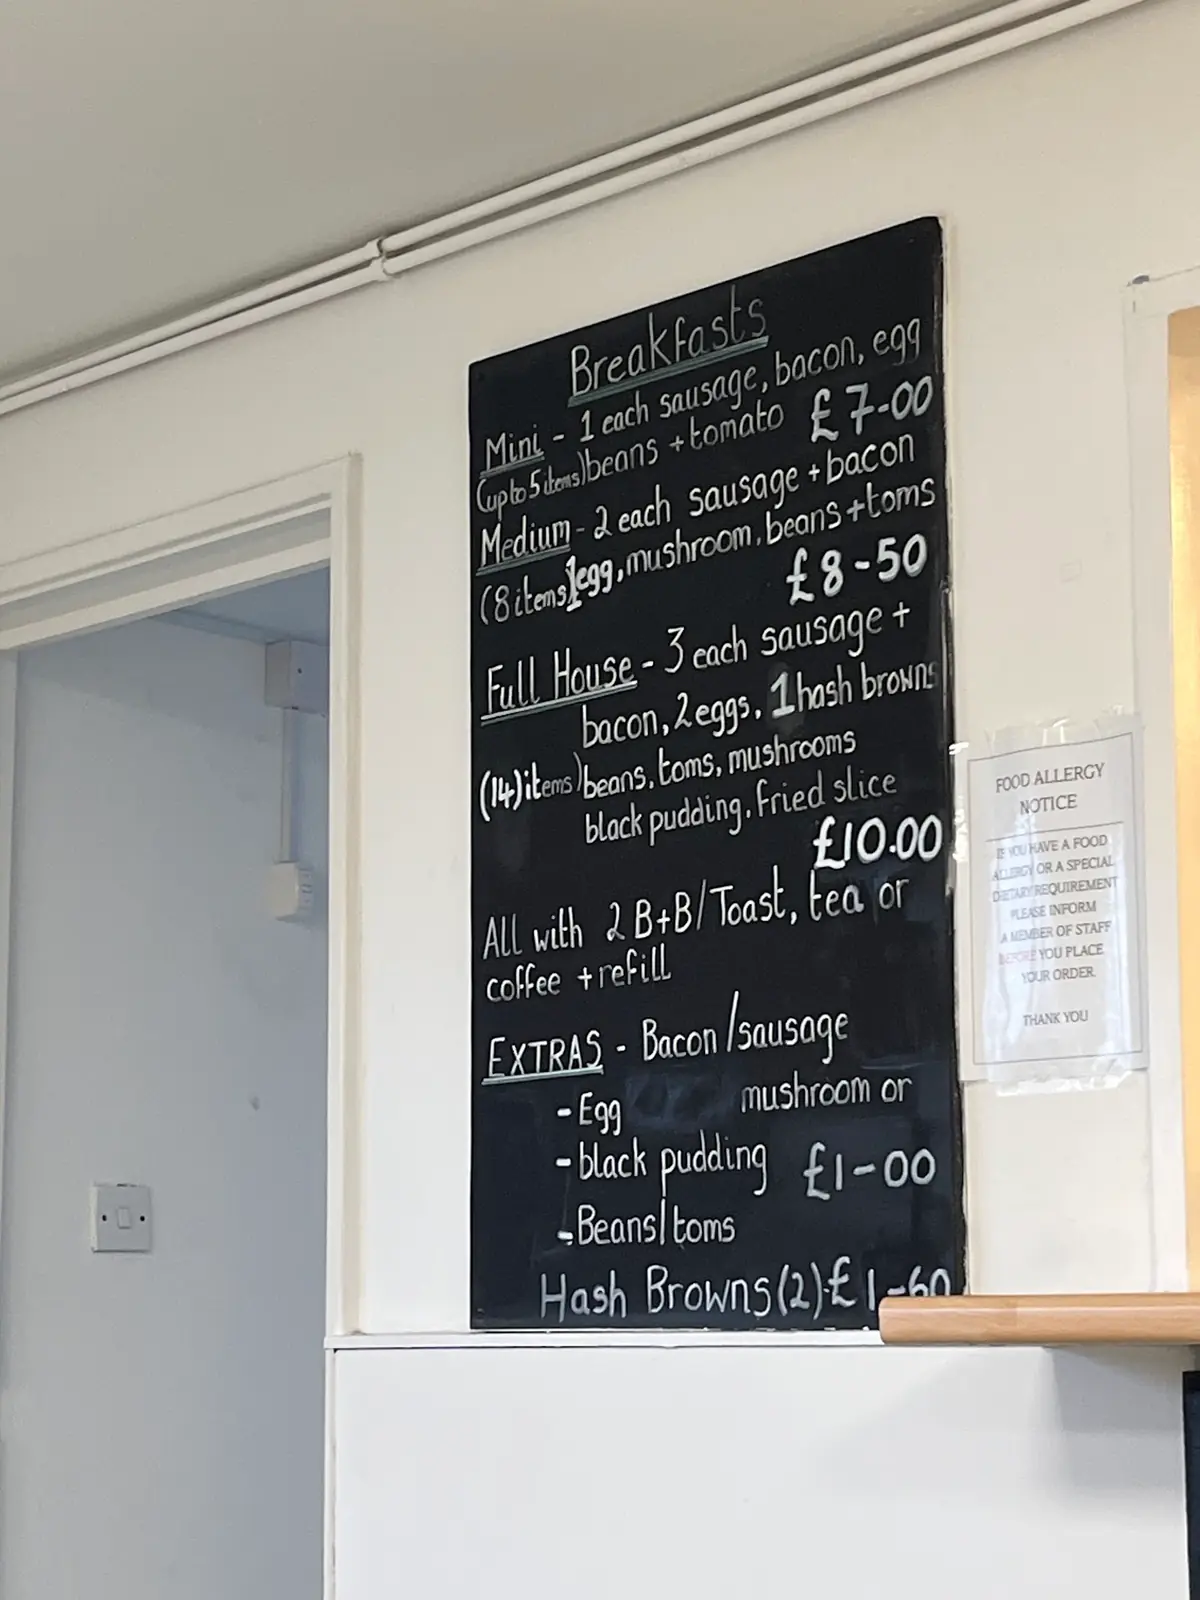 Breakfasts
Mini - 1 each sausage, bacon, egg
(up to 5 items) beans + tomato £7-00
Medium - 2 each sausage + bacon
(8 items) 1 egg, mushroom, beans + toms
£8-50
Full House - 3 each sausage +
bacon, 2 eggs, 1 hash browns
(14) items) beans, toms, mushrooms
black pudding, fried slice
£10.00
All with 2 B+B/Toast, tea or
coffee + refill
EXTRAS - Bacon/sausage
- Egg mushroom or
- black pudding £1-00
- Beans/toms
Hash Browns (2) £1-60
FOOD ALLERGY
NOTICE
IF YOU HAVE A FOOD
ALLERGY OR A SPECIAL
DIETARY REQUIREMENT
PLEASE INFORM
A MEMBER OF STAFF
BEFORE YOU PLACE
YOUR ORDER.
THANK YOU